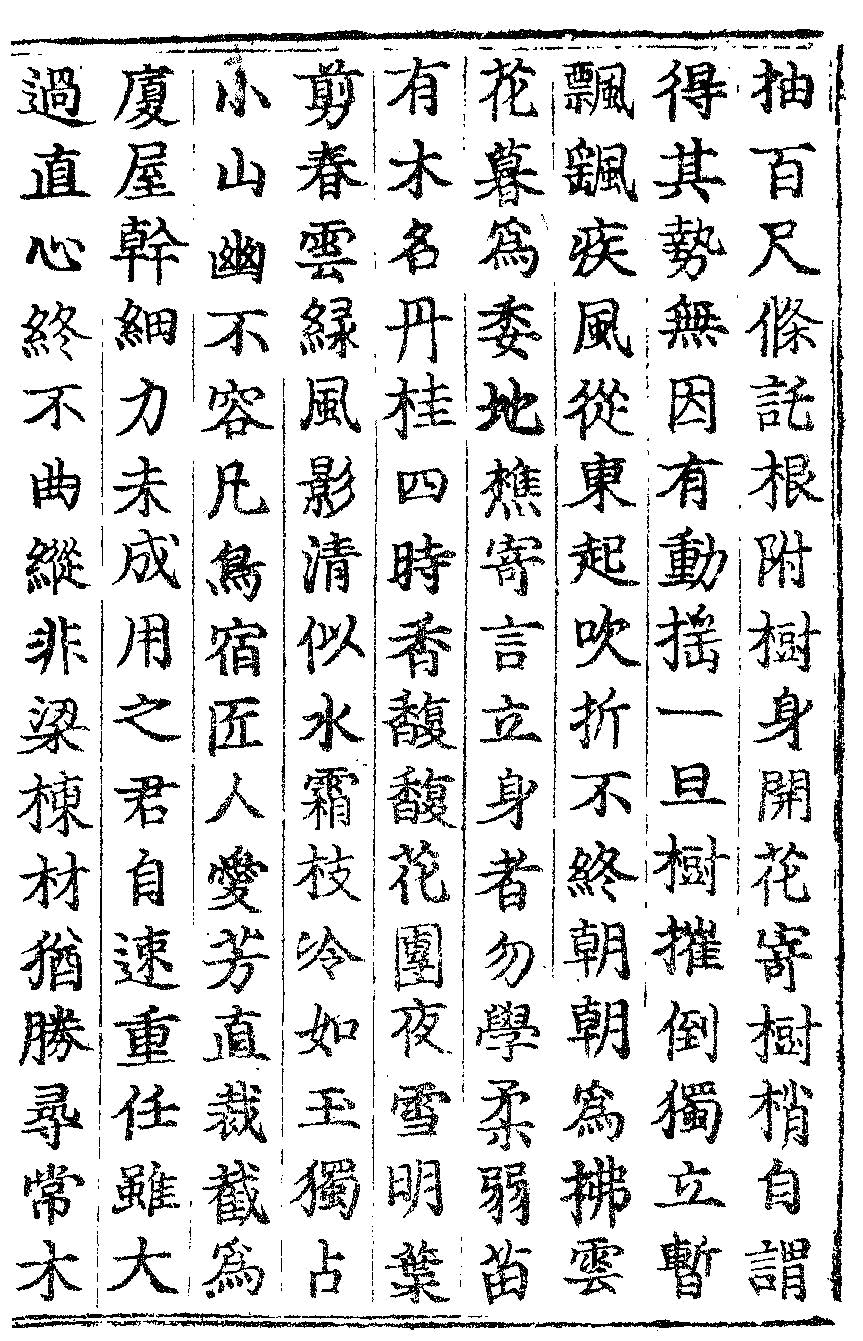 抽百尺條託根附樹身開花寄樹梢自謂
得其勢無因有動揺一旦樹摧倒獨立暫
飄颻疾風從東起吹折不終朝朝爲拂雲
花暮爲委地樵寄言立身者勿學柔弱苗
有木名丹桂四時香馥馥花團夜雪明葉
剪春雲緑風影清似水霜枝冷如玉獨占
小山幽不容凡鳥宿匠人愛芳直裁截爲
廈屋幹細力未成用之君自速重任雖大
過直心終不曲縱非梁棟材猶勝尋常木